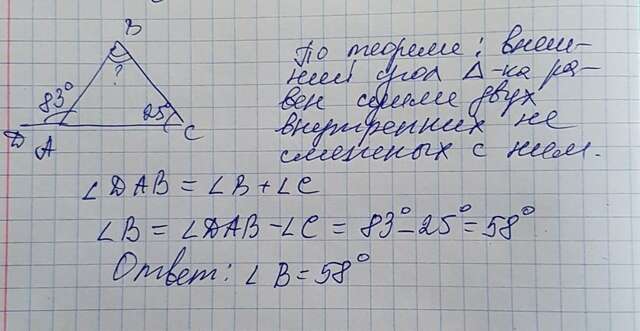 B
?
83°
25°
D A C
По теореме: внеш-
ний угол Δ-ка ра-
вен сумме двух
внутренних не
смежных с ним.
∠DAB = ∠B + ∠C
∠B = ∠DAB - ∠C = 83° - 25° = 58°
Ответ: ∠B = 58°